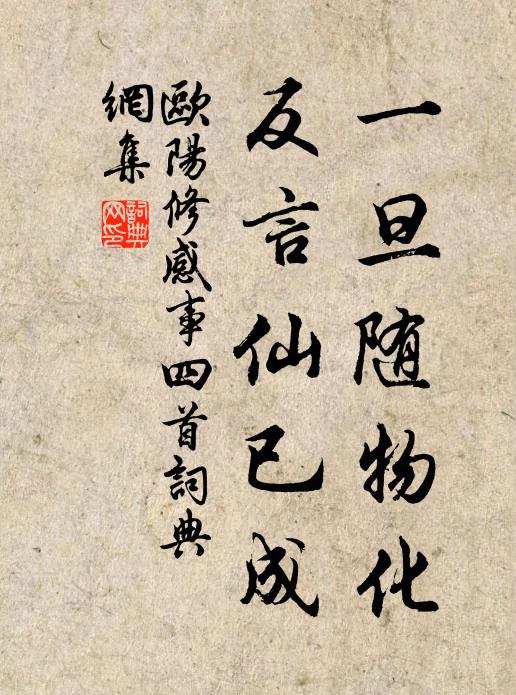 一旦随物化
反言仙已成
歐陽修感事四首詞典
網集
詞典
网印